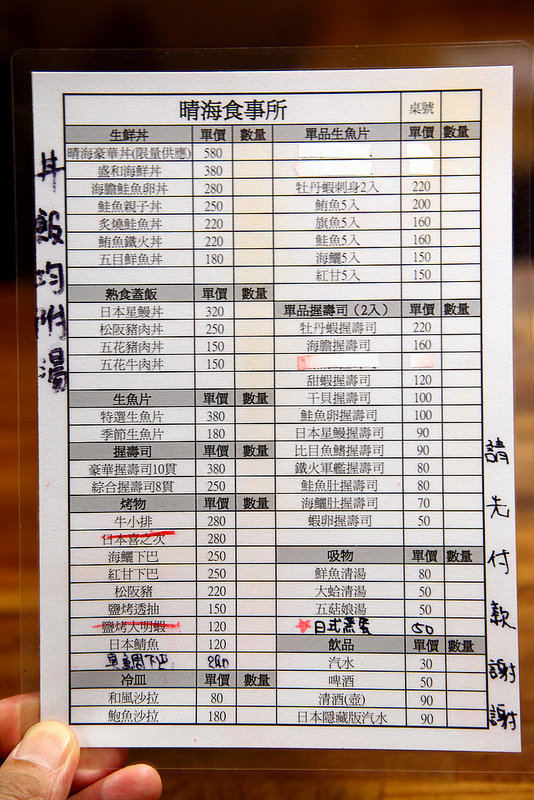 晴海食事所 桌號
生鮮丼 單價 數量
晴海豪華丼(限量供應) 580
盛和海鮮丼 380
海膽鮭魚卵丼 280
鮭魚親子丼 250
炙燒鮭魚丼 220
鮪魚鐵火丼 220
五目鮮魚丼 180
熟食蓋飯 單價 數量
日本星鰻丼 320
松阪豬肉丼 250
五花豬肉丼 150
五花牛肉丼 150
生魚片 單價 數量
特選生魚片 380
季節生魚片 180
握壽司 單價 數量
豪華握壽司10貫 380
綜合握壽司8貫 250
烤物 單價 數量
牛小排 280
日本喜之次 280
海鱺下巴 250
紅甘下巴 250
松阪豬 220
鹽烤透抽 150
鹽烤大明蝦 120
日本鯖魚 120
鯛下巴
冷皿 單價 數量
和風沙拉 80
鮑魚沙拉 180
單品生魚片 單價 數量
牡丹蝦刺身2入 220
鮪魚5入 200
旗魚5入 160
鮭魚5入 160
海鱺5入 150
紅甘5入 150
單品握壽司（2入） 單價 數量
牡丹蝦握壽司 220
海膽握壽司 160
甜蝦握壽司 120
干貝握壽司 100
鮭魚卵握壽司 100
日本星鰻握壽司 90
比目魚鰭握壽司 90
鐵火軍艦握壽司 80
鮭魚肚握壽司 80
海鱺肚握壽司 70
蝦卵握壽司 50
吸物 單價 數量
鮮魚清湯 80
大蛤清湯 50
五菇娘湯 50
日式蒸蛋 50
飲品 單價 數量
汽水 30
啤酒 50
清酒(壺) 90
日本隱藏版汽水 90
丼飯均附湯
請先付款謝謝